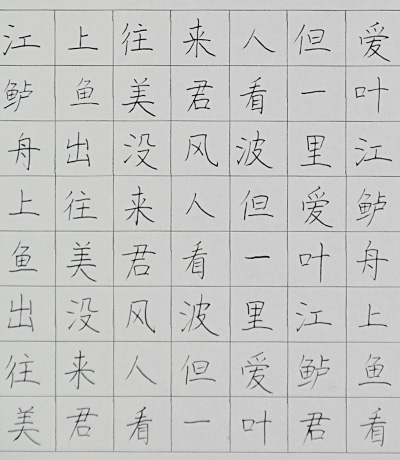 江上往来人但爱
鲈鱼美君看一叶
舟出没风波里江
上往来人但爱鲈
鱼美君看一叶舟
出没风波里江上
往来人但爱鲈鱼
美君看一叶君看